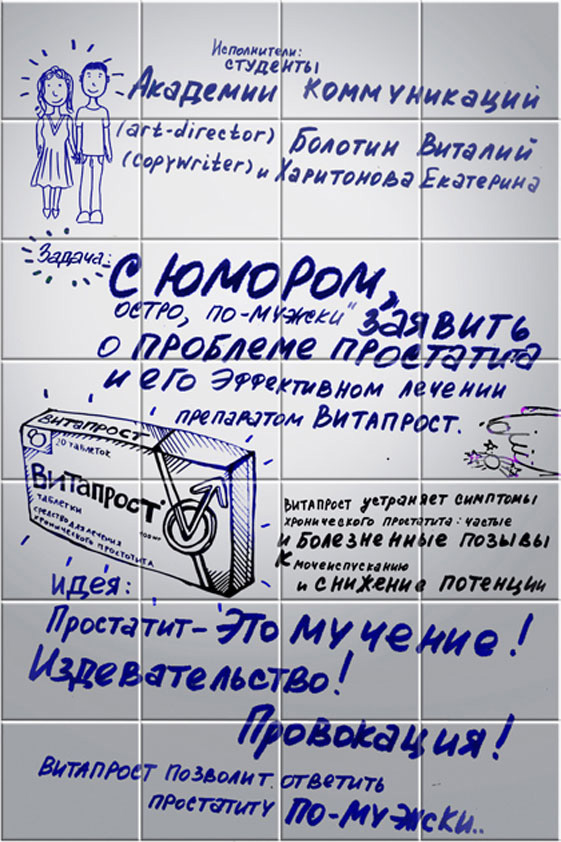 Исполнители:
студенты
Академии коммуникаций
(art-director) Болотин Виталий
(copywriter) и Харитонова Екатерина
Задача:
С ЮМОРОМ,
остро, по-мужски" заявить
о проблеме простатита
и его эффективном лечении
препаратом Витапрост.
Витапрост
20 таблеток
Витапрост
таблетки
средство для лечения
хронического простатита
Витапрост устраняет симптомы
хронического простатита: частые
и болезненные позывы
к мочеиспусканию
и снижение потенции
идея:
Простатит - Это мучение!
Издевательство!
Провокация!
Витапрост позволит ответить
простатиту по-мужски..